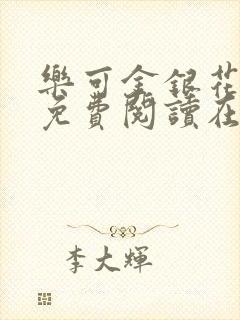 樂可金銀花
免費閱讀在
李大輝